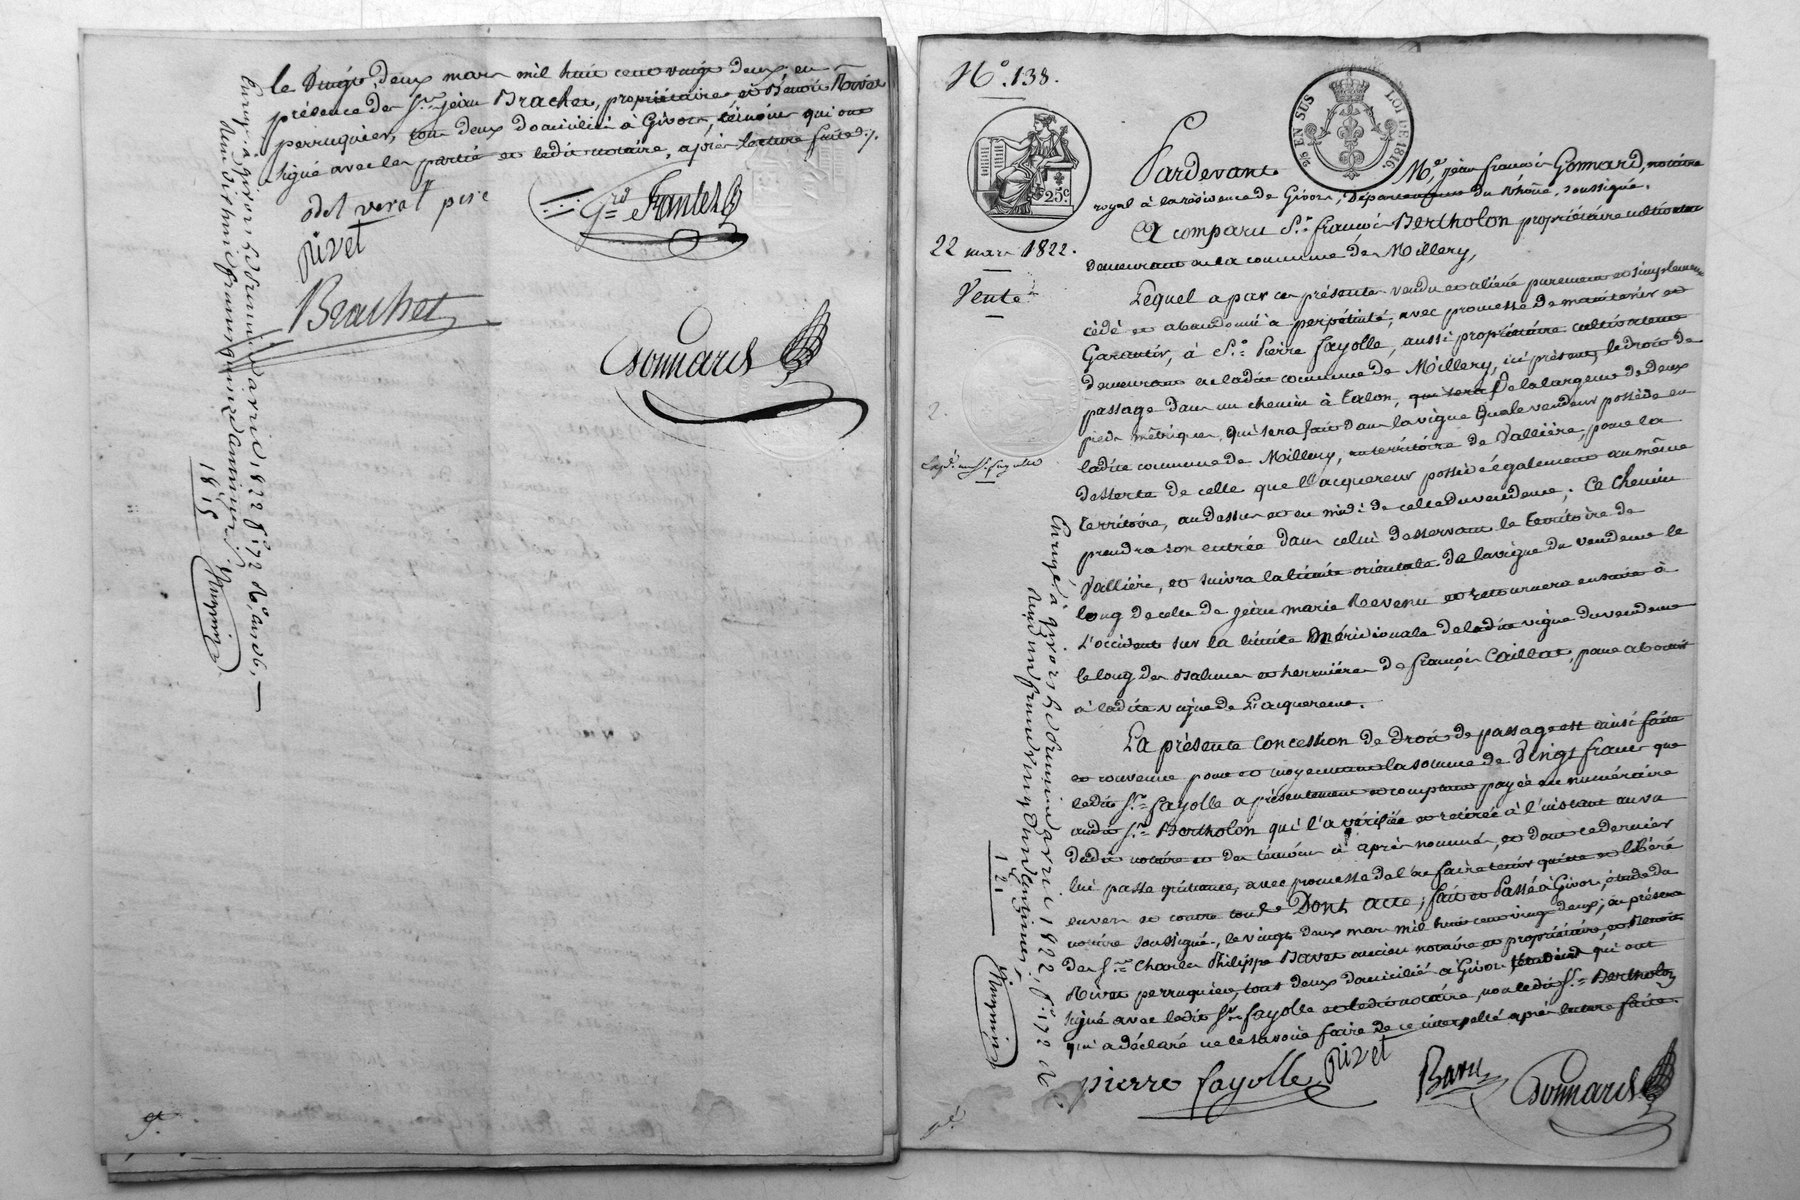 le vingt deux mars mil huit cent vingt deux, en
présence de Sr. jean Brachet, propriétaire et Benoit Rivet
perruquier, tous deux domiciliés à Givors, témoins qui ont
signé avec les parties et ledit notaire, après lecture faite ./.
odet verat pere
Grd Frantz
Rivet
Brachet
Gomard
Enregé. à givors le
avril 1822 fo. 172
1815
N°. 138.
96 EN SUS LOI DE 1816
25c.
22 mars 1822.
Vente
Pardevant Me. jean françois Gomard, notaire
royal à la résidence de Givors, Département du Rhône, soussigné.
A comparu Sr. françois Bertholon propriétaire cultivateur
demeurant en la commune de Millery,
Lequel a par ces présentes vendu et aliéné purement et simplement
cédé et abandonné à perpétuité, avec promesse de maintenir et
Garantir, à Sr. Pierre fayolle, aussi propriétaire cultivateur
demeurant en ladite commune de Millery, ici présent, le droit de
passage dans un chemin à talon, qui sera de la largeur de deux
pieds métriques, qui sera fait dans la vigne que le vendeur possède en
ladite commune de Millery, au territoire de Vallière, pour la
desserte de celle que l'acquereur possède également au même
territoire, au dessus et au midi de celle du vendeur; Ce Chemin
prendra son entrée dans celui desservant le territoire de
Vallière, et suivra la limite orientale de la vigne du vendeur le
long de celle de jean marie Revenu et retournera ensuite à
L'occident sur la limite Méridionale de ladite vigne du vendeur
le long des balmes et hermières de françois Caillat, pour aboutir
à ladite vigne de L'acquereur.
La présente Concession de droit de passage est ainsi faite
et convenue pour et moyennant la somme de Vingt francs que
ledit Sr. fayolle a présentement et comptant payée en numéraire
audit Sr. Bertholon qui l'a vérifiée et retirée à l'instant au vu
dudit notaire et des témoins ci après nommés, et dont ce dernier
lui passe quittance, avec promesse de l'en faire tenir quitte et libéré
envers et contre tous. Dont acte; fait et Passé à Givors, étude du
notaire soussigné, le vingt deux mars mil huit cent vingt deux; en présence
de Sr. Charles Philippe Bavet ancien notaire et propriétaire, et Benoit
Rivet perruquier, tous deux domiciliés à Givors témoins qui ont
signé avec ledit Sr. fayolle et ledit notaire, non ledit Sr. Bertholon
qui a déclaré ne le savoir faire de ce interpellé après lecture faite.
pierre fayolle
Rivet
Gomard
Enregé. à givors le
avril 1822, fo. 172